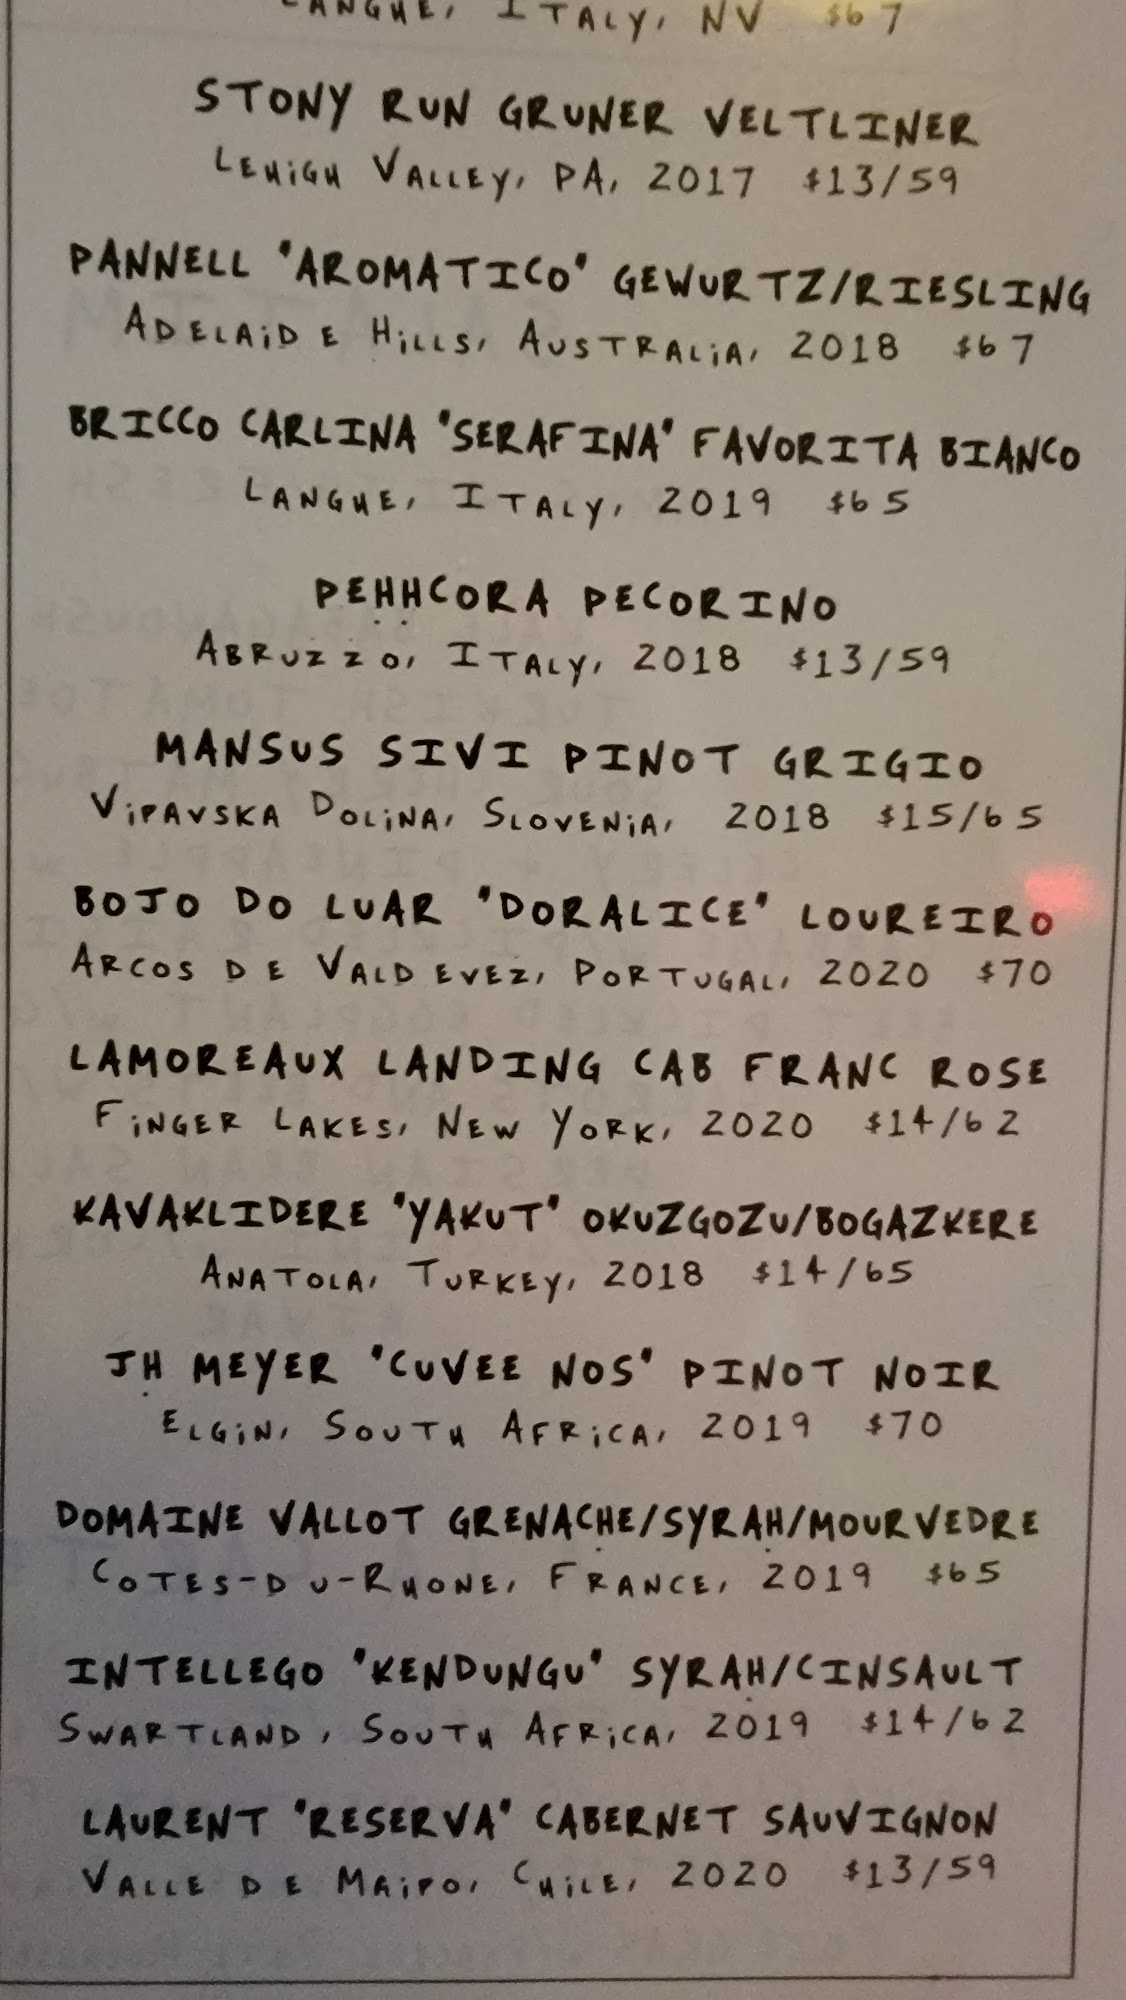 LANGHE, ITALY, NV $67
STONY RUN GRUNER VELTLINER
LEHIGH VALLEY, PA, 2017 $13/59
PANNELL "AROMATICO" GEWURTZ/RIESLING
ADELAIDE HILLS, AUSTRALIA, 2018 $67
BRICCO CARLINA "SERAFINA" FAVORITA BIANCO
LANGHE, ITALY, 2019 $65
PEHHCORA PECORINO
ABRUZZO, ITALY, 2018 $13/59
MANSUS SIVI PINOT GRIGIO
VIPAVSKA DOLINA, SLOVENIA, 2018 $15/65
BOJO DO LUAR "DORALICE" LOUREIRO
ARCOS DE VALDEVEZ, PORTUGAL, 2020 $70
LAMOREAUX LANDING CAB FRANC ROSE
FINGER LAKES, NEW YORK, 2020 $14/62
KAVAKLIDERE "YAKUT" OKUZGOZU/BOGAZKERE
ANATOLA, TURKEY, 2018 $14/65
JH MEYER "CUVEE NOS" PINOT NOIR
ELGIN, SOUTH AFRICA, 2019 $70
DOMAINE VALLOT GRENACHE/SYRAH/MOURVEDRE
COTES-DU-RHONE, FRANCE, 2019 $65
INTELLEGO "KENDUNGU" SYRAH/CINSAULT
SWARTLAND, SOUTH AFRICA, 2019 $14/62
LAURENT "RESERVA" CABERNET SAUVIGNON
VALLE DE MAIPO, CHILE, 2020 $13/59